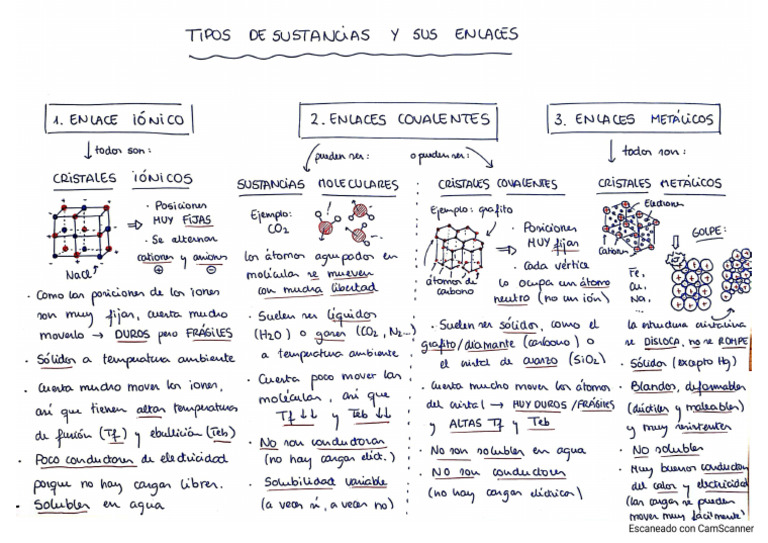 TIPOS DE SUSTANCIAS Y SUS ENLACES
1. ENLACE IÓNICO
↓ todos son:
CRISTALES IÓNICOS
· Posiciones
MUY FIJAS
· Se alternan
cationes y aniones
⊕ ⊖
NaCl
· Como las posiciones de los iones
son muy fijas, cuesta mucho
moverlo → DUROS pero FRÁGILES
· Sólidos a temperatura ambiente
· Cuesta mucho mover los iones,
así que tienen altas temperaturas
de fusión (Tf) y ebullición (Teb)
· Poco conductores de electricidad
porque no hay cargas libres.
· Solubles en agua
2. ENLACES COVALENTES
pueden ser:
SUSTANCIAS MOLECULARES
Ejemplo:
CO2
los átomos agrupados en
moléculas se mueven
con mucha libertad
· Suelen ser líquidos
(H2O) o gases (CO2, N2...)
a temperatura ambiente
· Cuesta poco mover las
moléculas, así que
Tf ↓↓ y Teb ↓↓
· No son conductoras
(no hay cargas eléct.)
· Solubilidad variable
(a veces sí, a veces no)
o pueden ser:
CRISTALES COVALENTES
Ejemplo: grafito
átomos de
carbono
· Posiciones
MUY fijas
· Cada vértice
lo ocupa un átomo
neutro (no un ión)
· Suelen ser sólidos, como el
grafito/diamante (carbono) o
el cristal de cuarzo (SiO2)
· Cuesta mucho mover los átomos
del cristal → MUY DUROS / FRÁGILES
y ALTAS Tf y Teb
· No son solubles en agua
· NO son conductores
(no hay cargas eléctricas)
3. ENLACES METÁLICOS
↓ todos son:
CRISTALES METÁLICOS
Electrones
Cationes
GOLPE:
Fe,
Cu,
Na, ...
la estructura cristalina
se DISLOCA, no se ROMPE
· Sólidos (excepto Hg)
· Blandos, deformables
(dúctiles y maleables)
y muy resistentes
· No solubles
· Muy buenos conductores
del calor y electricidad
(las cargas se pueden
mover muy fácilmente)
Escaneado con CamScanner